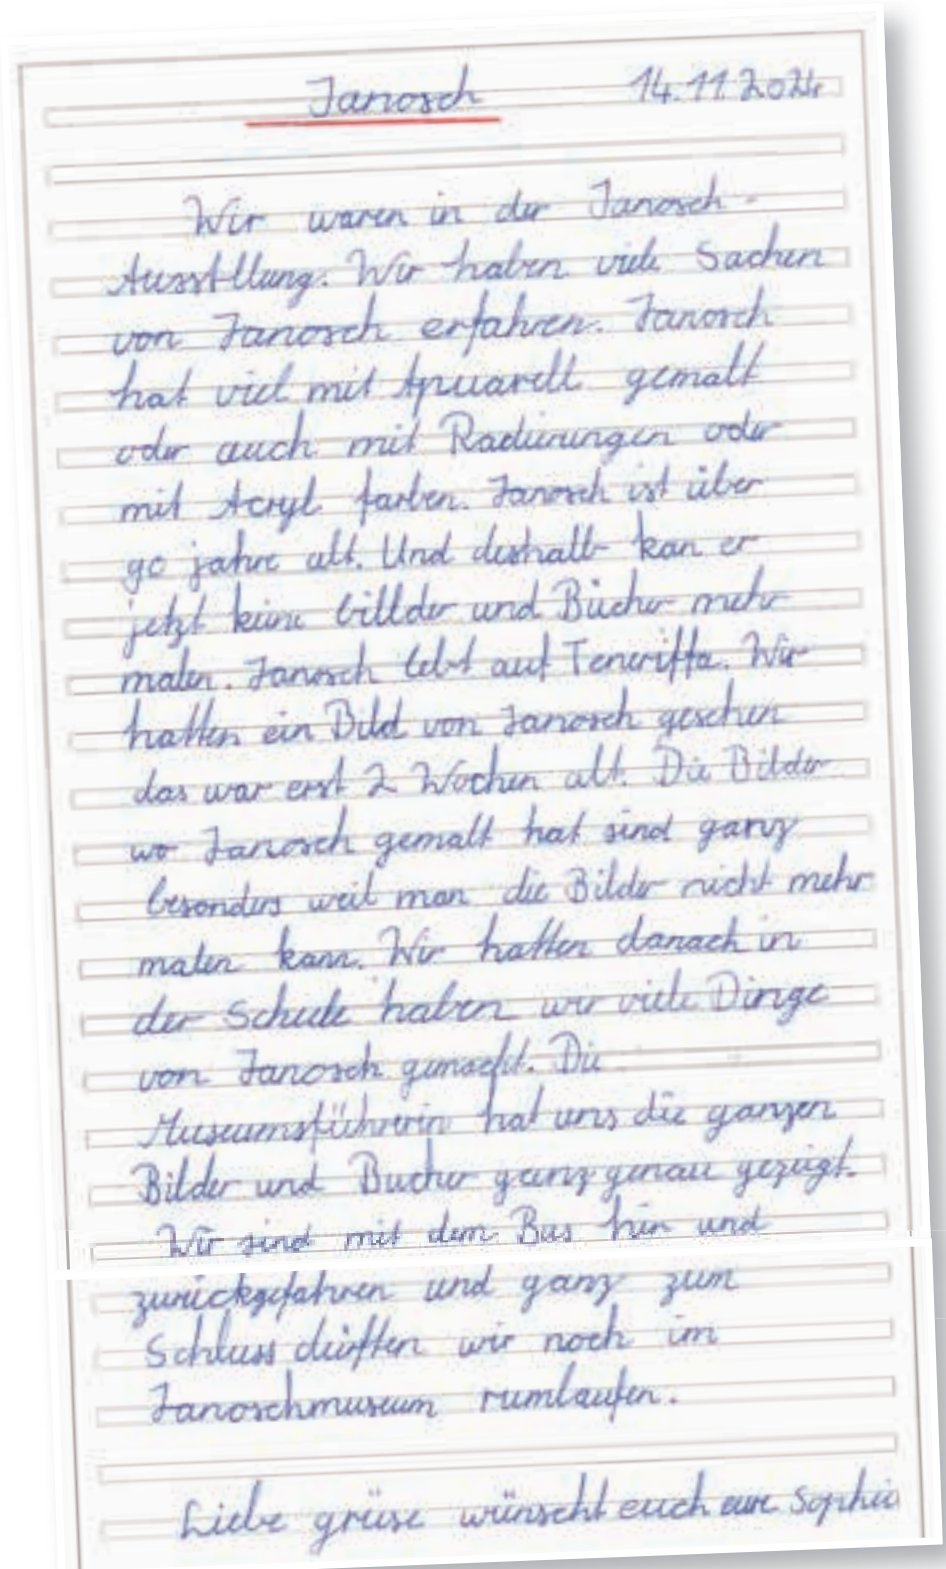 Janosch 14.11.2024
Wir waren in der Janosch-
Ausstllung. Wir haben viele Sachen
von Janosch erfahren. Janosch
hat viel mit Aquarell gemalt
oder auch mit Radierungen oder
mit Acryl farben. Janosch ist über
90 jahre alt. Und deshalb kan er
jetzt keine billder und Bücher mehr
malen. Janosch lebt auf Teneriffa. Wir
hatten ein Bild von Janosch gesehen
das war erst 2 Wochen alt. Die Bilder
wo Janosch gemalt hat sind ganz
besonders weil man die Bilder nicht mehr
malen kann. Wir hatten danach in
der Schule haben wir viele Dinge
von Janosch gemacht. Die
Museumsführerin hat uns die ganzen
Bilder und Bücher ganz genau gezeigt.
Wir sind mit dem Bus hin und
zurückgefahren und ganz zum
Schluss dürften wir noch im
Janoschmuseum rumlaufen.
Liebe grüse wünscht euch eure Sophie